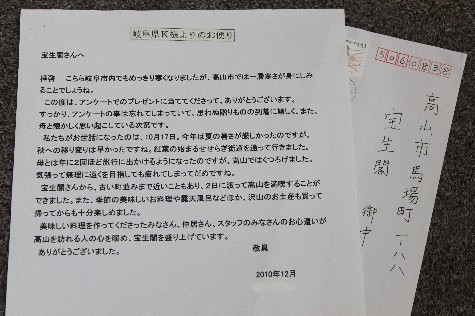 岐阜県K様よりのお便り
宝生閣さんへ
拝啓 こちら岐阜市内でもめっきり寒くなりましたが、高山市では一層寒さが身にしみ
ることでしょうね。
この度は、アンケートでのプレゼントに当ててくださって、ありがとうございます。
すっかり、アンケートの事は忘れてしまっていて、思わぬ贈りものの到着に嬉しく、また、
母と懐かしく思い起こしている次第です。
私たちがお世話になったのは、10月17日。今年は夏の暑さが厳しかったのですが、
秋への移り変りは早かったですね。紅葉の始まるせせらぎ街道を通って行きました。
母とは年に2回ほど旅行に出かけるようになったのですが、高山ではくつろげました。
気張って無理に遠くを目指しても疲れてしまってだめですね。
宝生閣さんから、古い町並みまで近いこともあり、2日に渡って高山を満喫することが
できました。また、季節の美味しいお料理や露天風呂などほか、沢山のお土産も買って
帰ってからも十分楽しめました。
美味しい料理を作ってくださったみなさん、仲居さん、スタッフのみなさんのお心遣いが
高山を訪れる人の心を暖め、宝生閣を盛り上げています。
ありがとうございました。
敬具
2010年12月
5060838
高山市馬場町1-88
宝生閣 御中